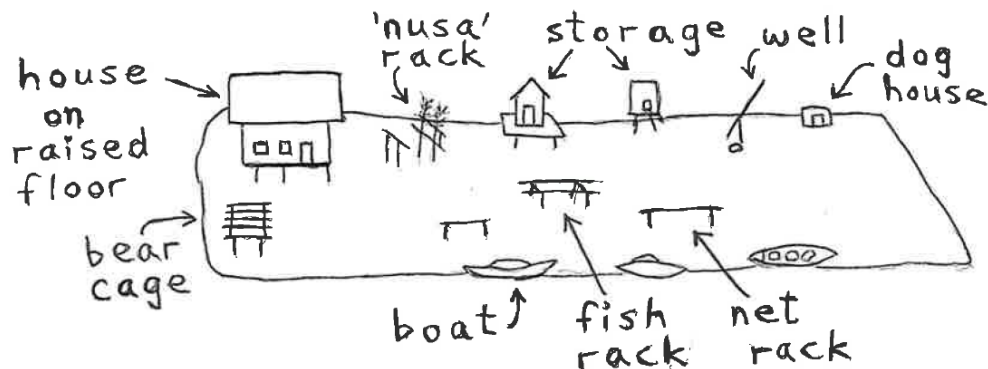 house
on
raised
floor
'nusa'
rack
storage
well
dog
house
bear
cage
boat
fish
rack
net
rack